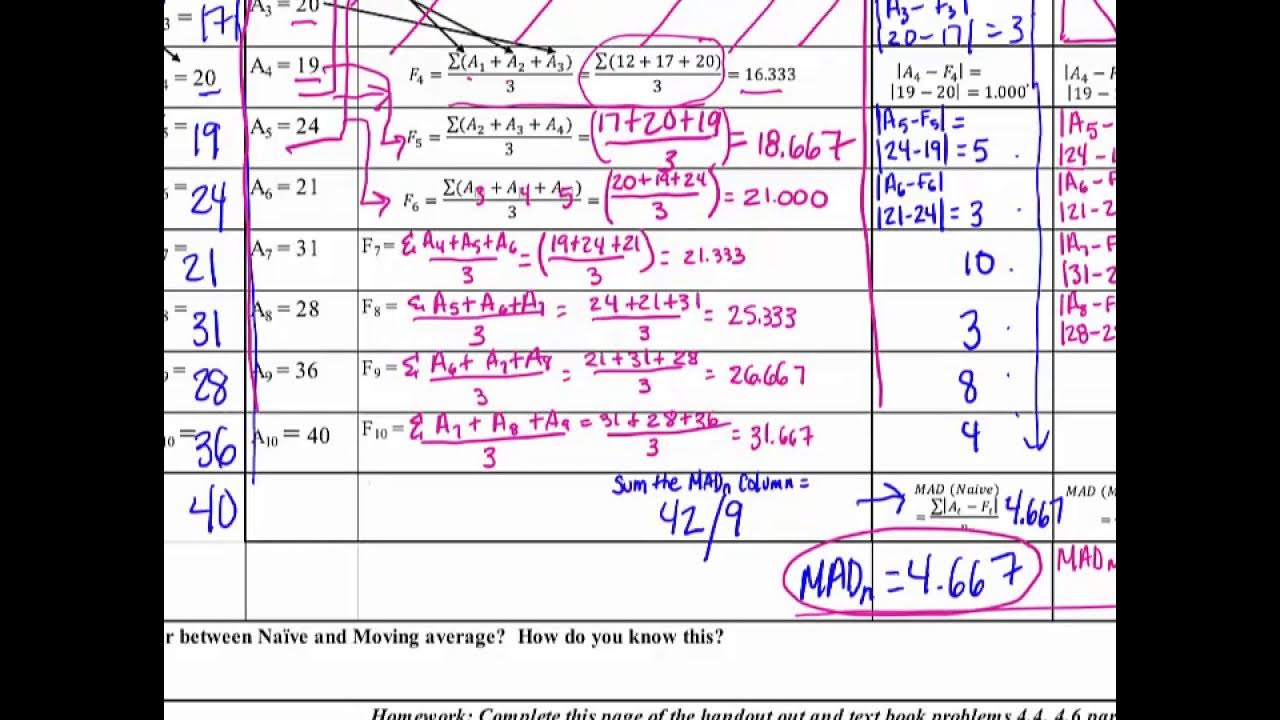 3 = 17 A3 = 20 |A3 - F3|
|20-17| = 3
4 = 20 A4 = 19 F4 = Σ(A1 + A2 + A3)/3 = Σ(12 + 17 + 20)/3 = 16.333 |A4 − F4| = |A4 − F
|19 − 20| = 1.000 |19 −
= 19 A5 = 24 F5 = Σ(A2 + A3 + A4)/3 = (17+20+19)/3 = 18.667 |A5-F5| = |A5-
|24-19| = 5 |24 -
= 24 A6 = 21 F6 = Σ(A3 + A4 + A5)/3 = (20+19+24)/3 = 21.000 |A6-F6| |A6 - F
|21-24| = 3 |21-2
= 21 A7 = 31 F7 = Σ A4+A5+A6/3 = (19+24+21)/3 = 21.333 10 |A7-F
|31-2
= 31 A8 = 28 F8 = Σ A5+A6+A7/3 = 24+21+31/3 = 25.333 3 |A8-F
|28-2
= 28 A9 = 36 F9 = Σ A6+ A7+A8/3 = 21+31+28/3 = 26.667 8
10 = 36 A10 = 40 F10 = Σ A7 + A8 + A9/3 = 31+28+36/3 = 31.667 4
40 Sum the MADn Column = 42/9 → MAD (Naive) MAD (M
= Σ|At − Ft|/n 4.667 =
MADn = 4.667 MADM
r between Naïve and Moving average? How do you know this?
Homework: Complete this page of the handout out and text book problems 4.4, 4.6 par